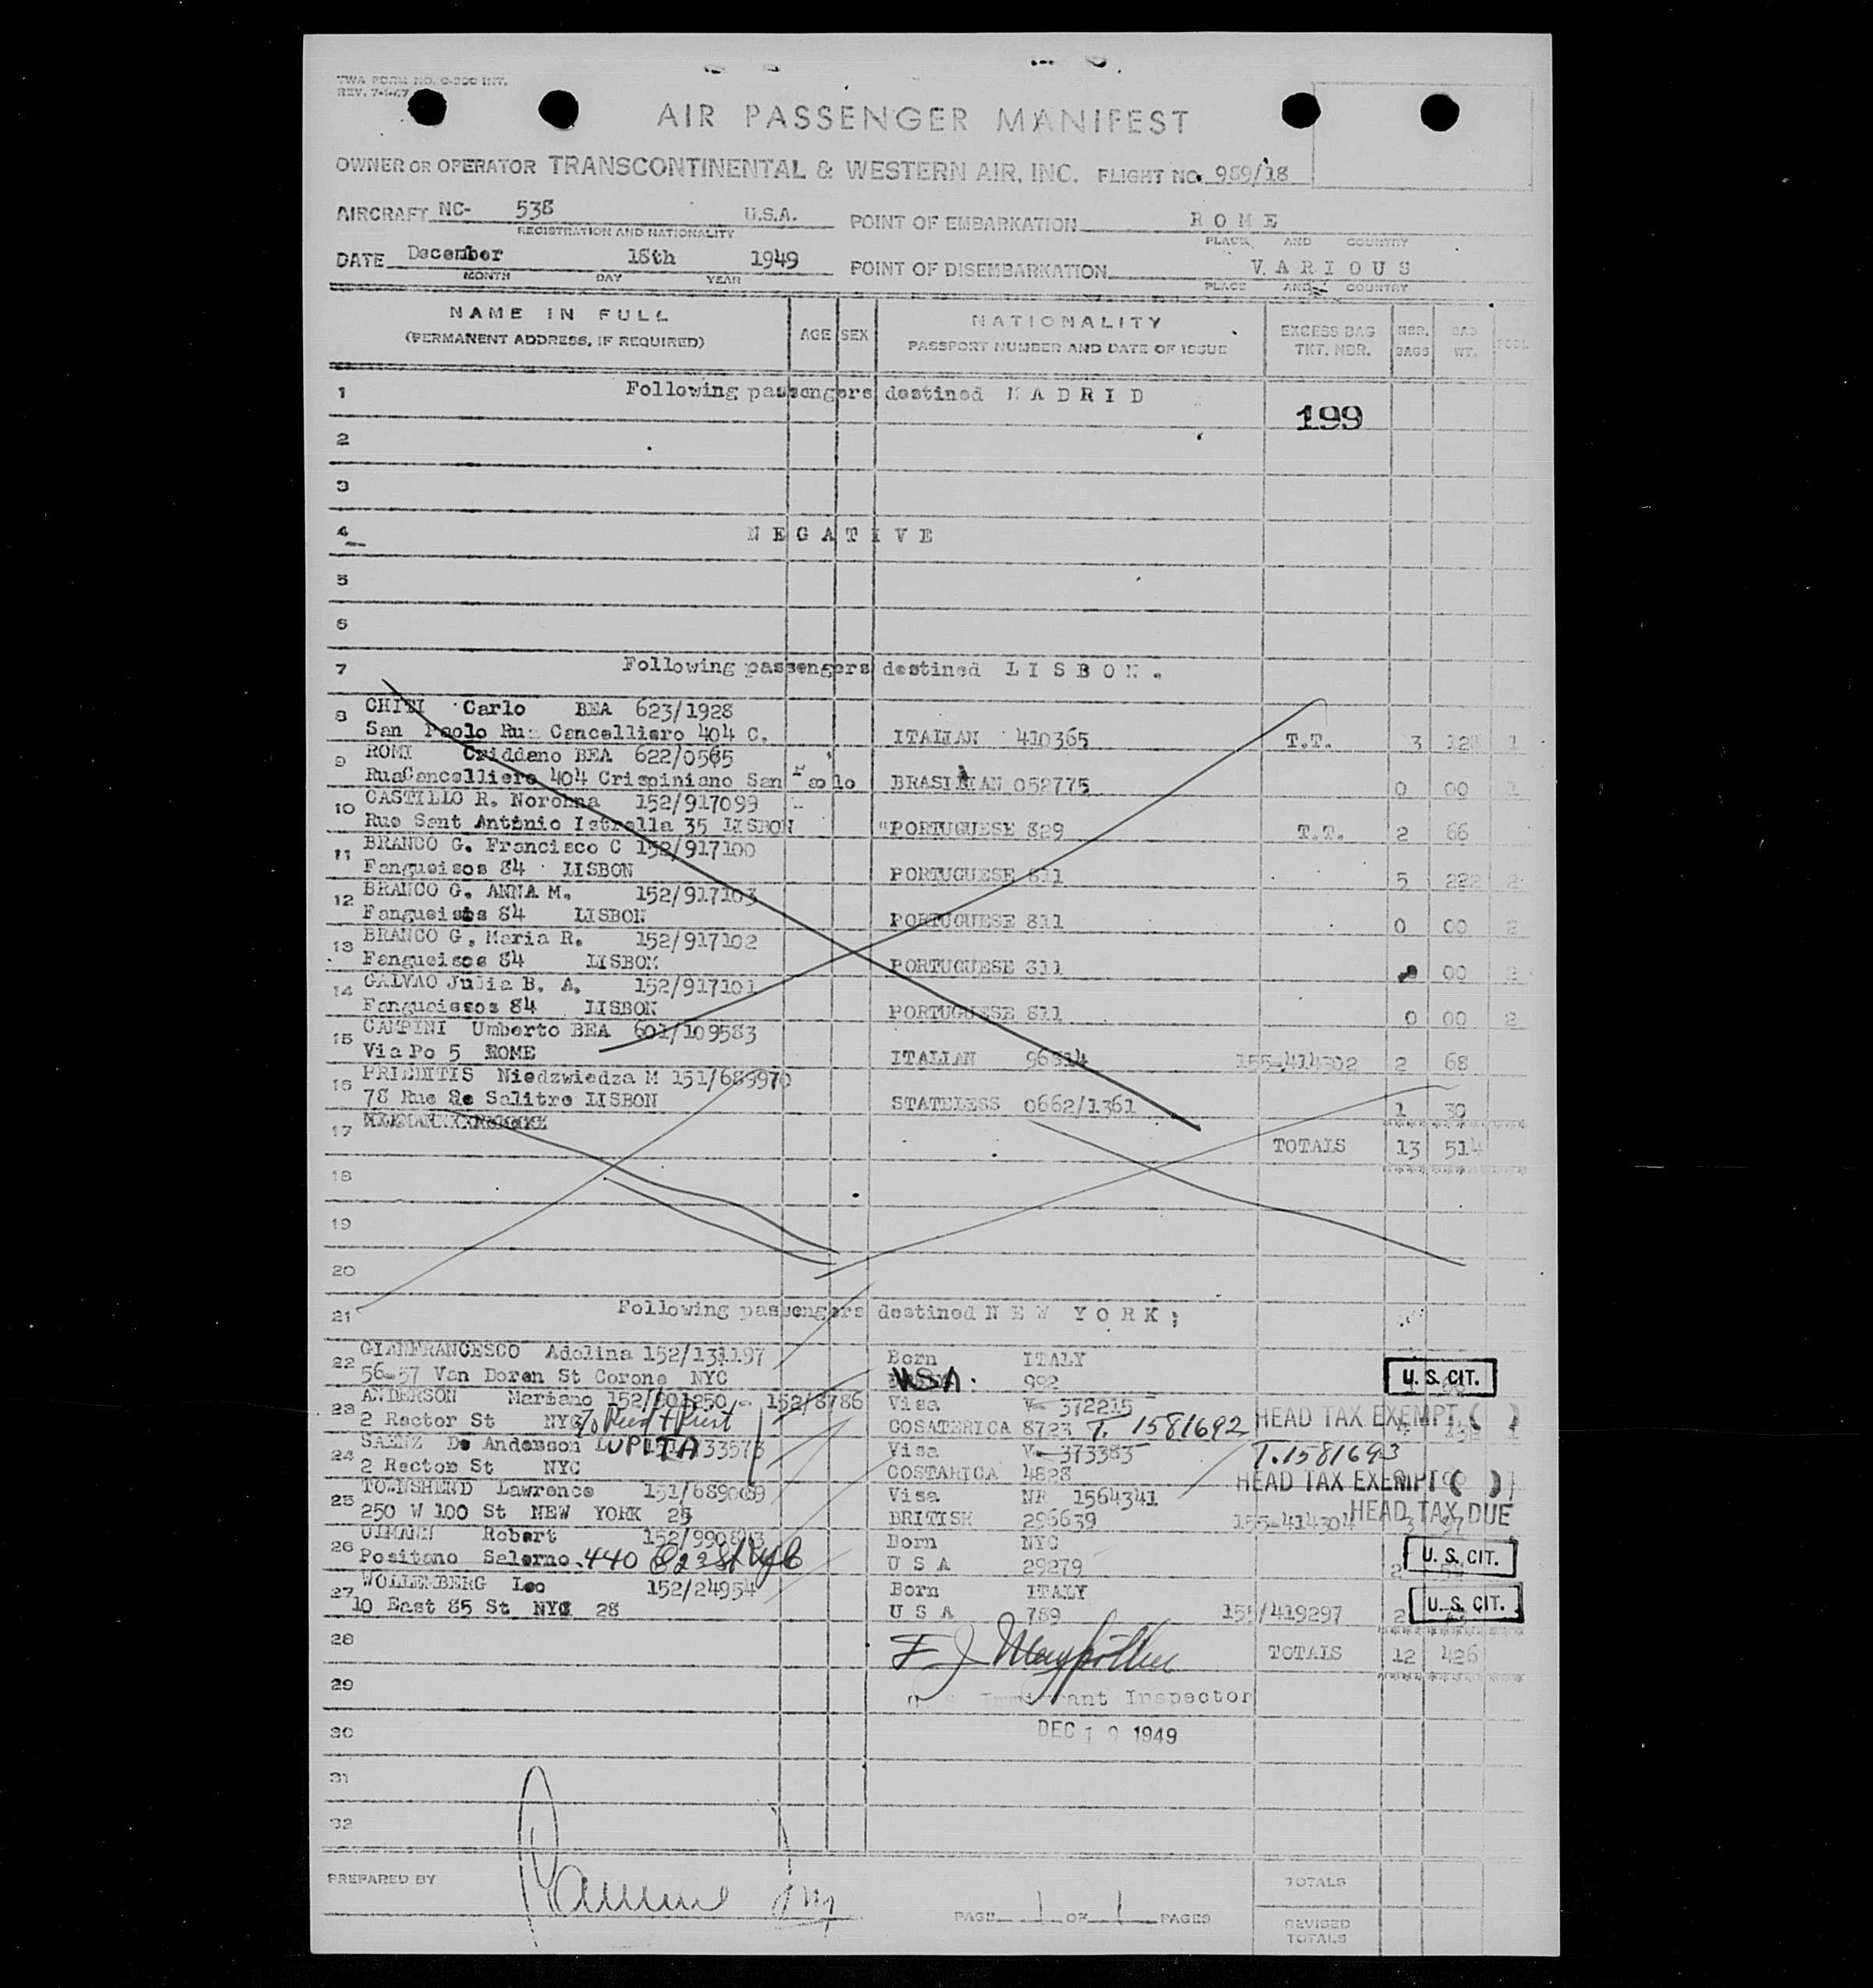 TWA FORM NO. O-300 INT.
REV. 7-1-47
AIR PASSENGER MANIFEST
OWNER OR OPERATOR TRANSCONTINENTAL & WESTERN AIR, INC. FLIGHT NO. 989/18
AIRCRAFT NC- 538 U.S.A. POINT OF EMBARKATION ROME
REGISTRATION AND NATIONALITY PLACE AND COUNTRY
DATE December 18th 1949 POINT OF DISEMBARKATION VARIOUS
MONTH DAY YEAR PLACE AND COUNTRY
NAME IN FULL
(PERMANENT ADDRESS, IF REQUIRED)
AGE SEX
NATIONALITY
PASSPORT NUMBER AND DATE OF ISSUE
EXCESS BAG
TKT. NBR.
NBR.
BAGS
BAG
WT.
1 Following passengers destined MADRID
199
2
3
4 NEGATIVE
5
6
7 Following passengers destined LISBON.
8 Carlo BEA 623/1928
San Paolo Rua Cancelliero 404 C. ITALIAN 410365 T.T. 3 1
9 ROMI Criddano BEA 622/0565
RuaCancelliere 404 Crispiniano San Paolo BRASILIAN 052775 0 00 1
10 CASTILLO R. Norohna 152/917099
Rue Sant Antonio Istrella 35 LISBON "PORTUGUESE 829 T.T. 2 66
11 BRANCO G. Francisco C 152/917100
Fangueisos 84 LISBON PORTUGUESE 811 5 222 2
12 BRANCO G. ANNA M. 152/917103
84 LISBON PORTUGUESE 811 0 00 2
13 BRANCO G. Maria R. 152/917102
Fangueisos 84 LISBON PORTUGUESE 811 00 2
14 GALVAO Julia B. A. 152/917101
Fangueissos 84 LISBON PORTUGUESE 811 0 00 2
15 CAMPINI Umberto BEA 601/109583
Via Po 5 ROME ITALIAN 96814 155-414302 2 68
16 PRIEDITIS Niedzwiedza M 151/689970
78 Rue De Salitre LISBON STATELESS 0662/1361 1 30
17 TOTALS 13 514
18
19
20
21 Following passengers destined NEW YORK;
22 GIANFRANCESCO Adelina 152/131197 Born ITALY
56-57 Van Doren St Corona NYC USA. 992 U.S. CIT.
23 ANDERSON Mariano 152/801250 - 152/8786 Visa V- 372215
2 Rector St NYC COSATERICA 8723 T. 1581692 HEAD TAX EXEMPT ( )
24 SAENZ De Anderson LUPITA Visa V- 373383 T.1581693
2 Rector St NYC COSTARICA 4828 HEAD TAX EXEMPT ( )
25 TOWNSHEND Lawrence 151/689009 Visa NR 1564341
250 W 100 St NEW YORK 25 BRITISH 296639 155-414304 3 HEAD TAX DUE
26 Robert Born NYC
Positano Salerno. 440 E 23 St NYC U S A 29279 2 U.S. CIT.
27 WOLLEMBERG Leo 152/24954 Born ITALY
10 East 85 St NYC 28 U S A 789 155/419297 2 U.S. CIT.
28 TOTALS 12 426
29 U.S. Immigrant Inspector
30 DEC 19 1949
31
32
PREPARED BY
TOTALS
PAGE 1 OF 1 PAGES
REVISED
TOTALS